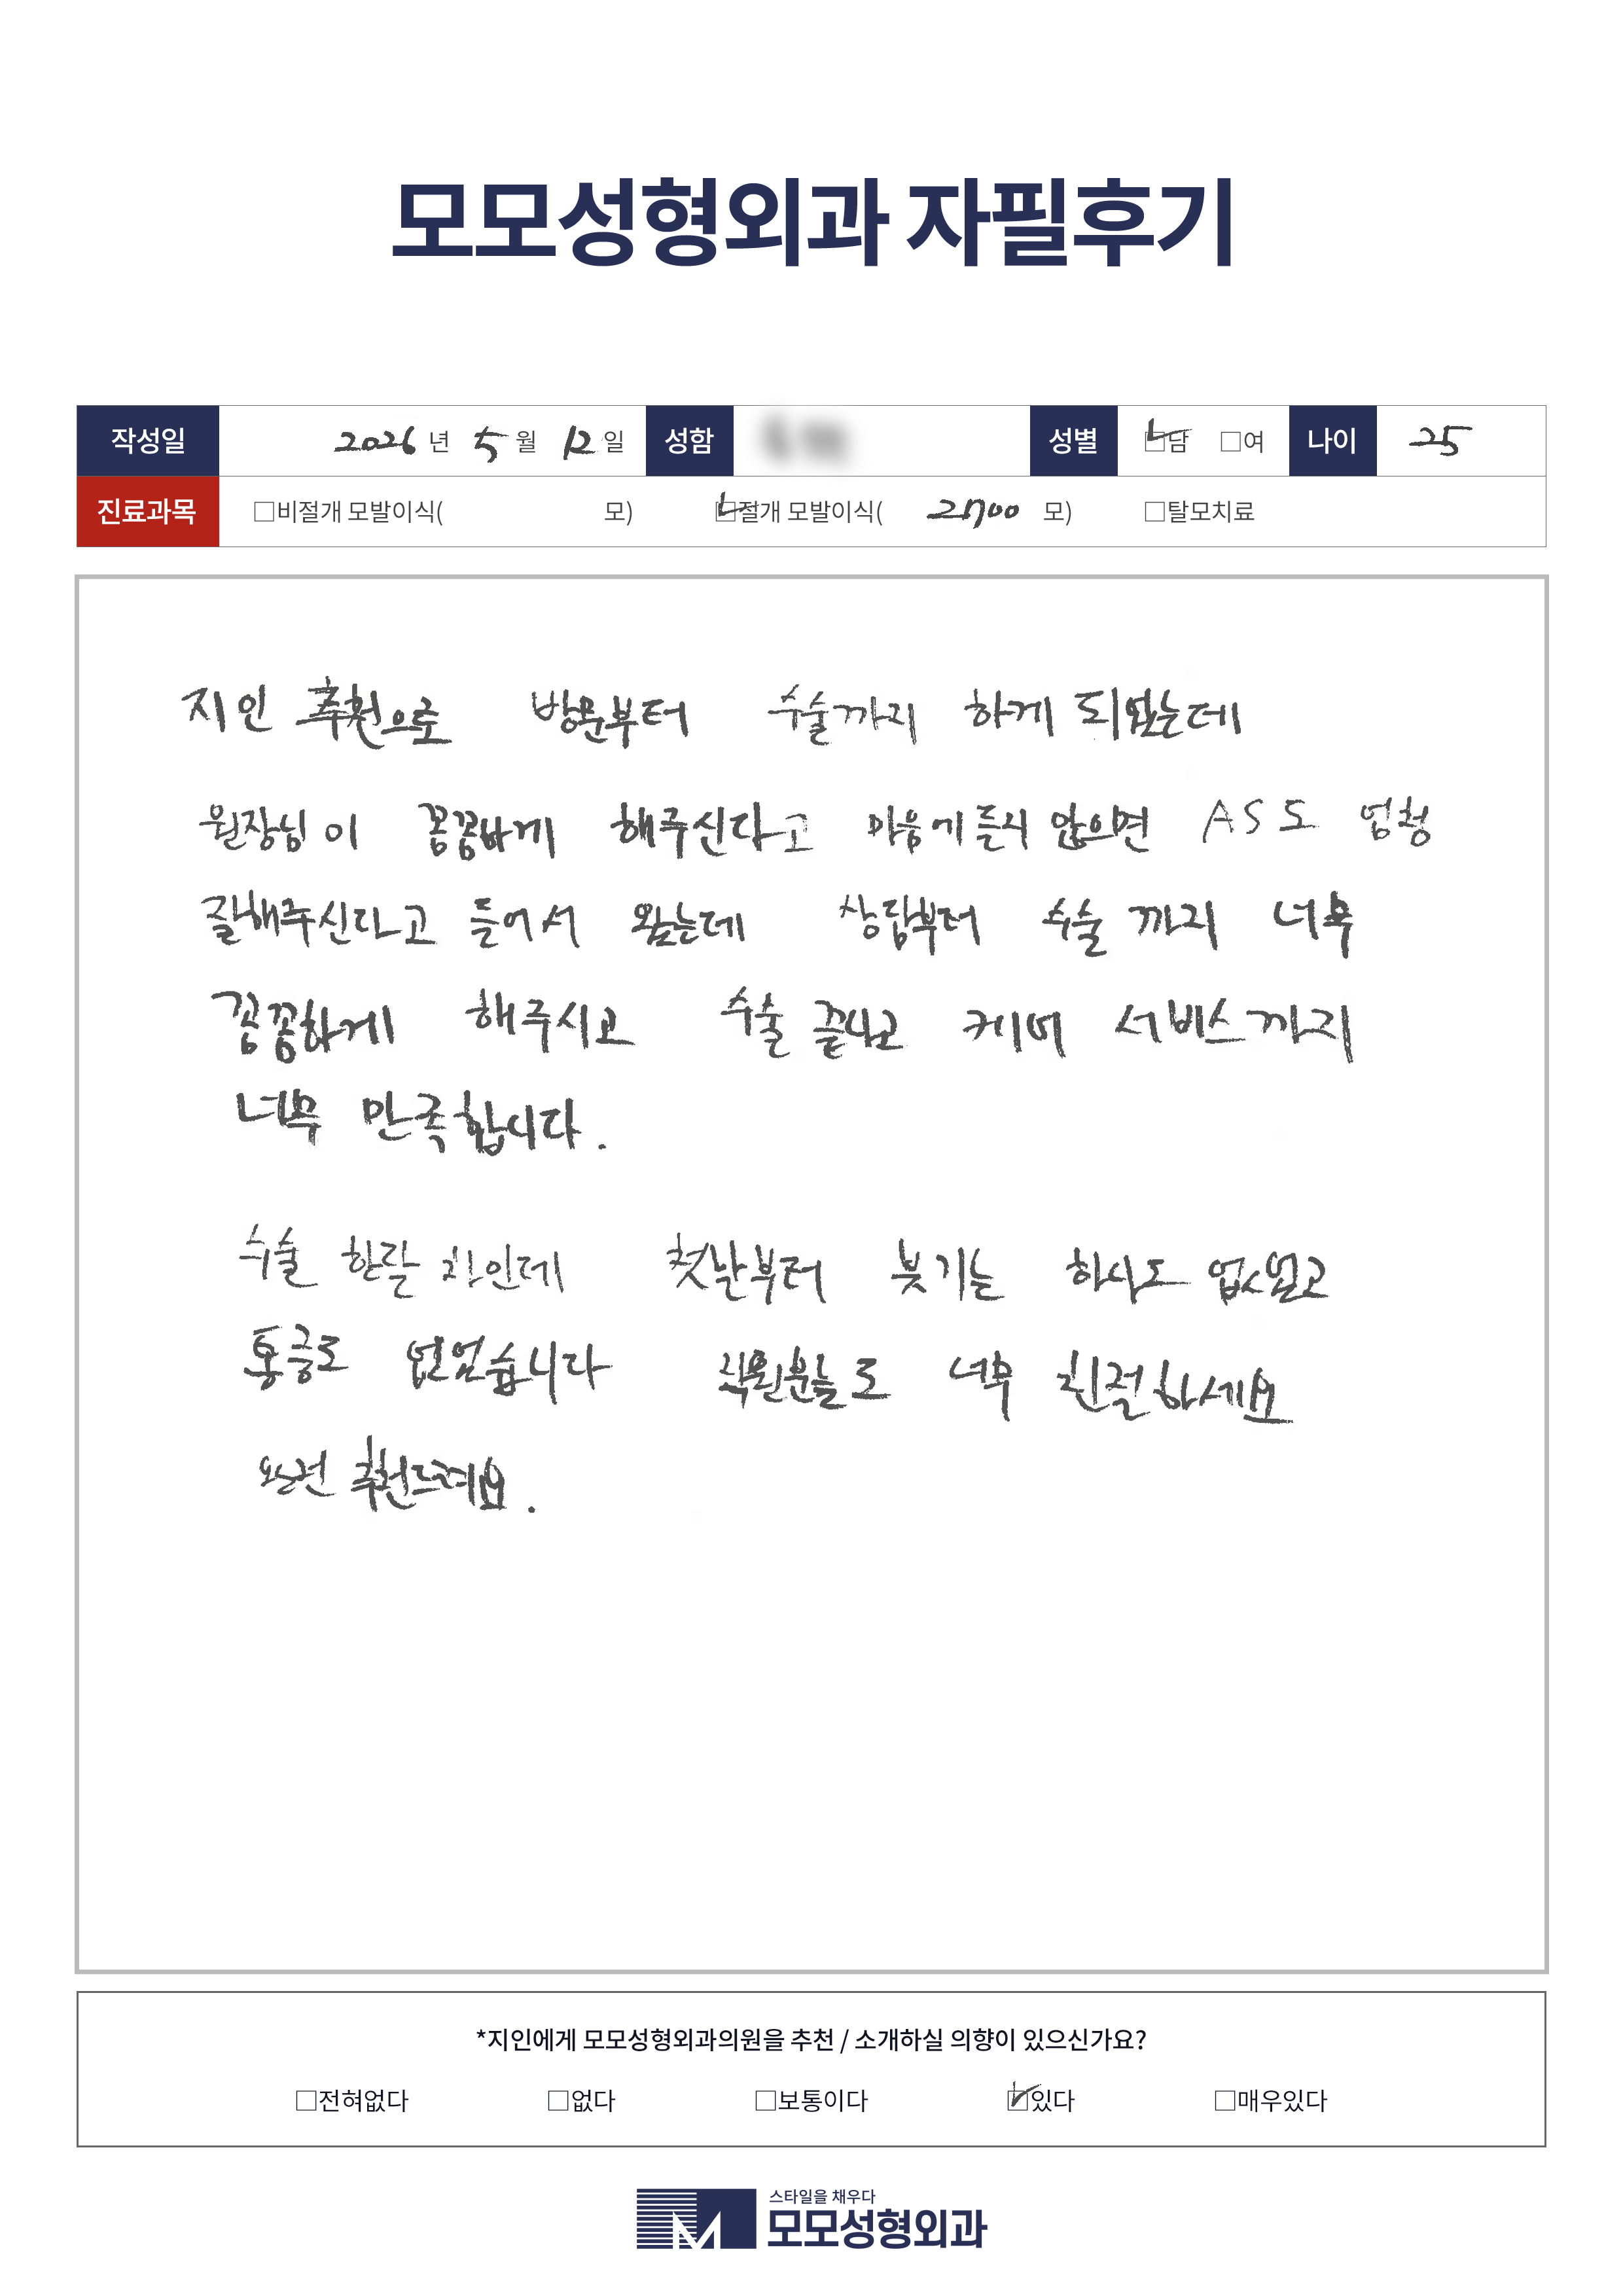 모모성형외과 자필후기
작성일 2026 년 5 월 12 일 성함 성별 □담 □여 나이 25
진료과목 □비절개 모발이식( 모) □절개 모발이식( 2700 모) □탈모치료
지인 추천으로 방문부터 수술까지 하게 되었는데
원장님이 꼼꼼하게 해주신다고 마음에 들지 않으면 AS도 엄청
잘해주신다고 들어서 왔는데 상담부터 수술까지 너무
꼼꼼하게 해주시고 수술 끝나고 케어 서비스까지
너무 만족합니다.
수술 한달 차인데 첫날부터 붓기는 하나도 없었고
통증도 없었습니다 직원분들도 너무 친절하세요
완전 추천드려요.
*지인에게 모모성형외과의원을 추천 / 소개하실 의향이 있으신가요?
□전혀없다 □없다 □보통이다 □있다 □매우있다
스타일을 채우다
모모성형외과